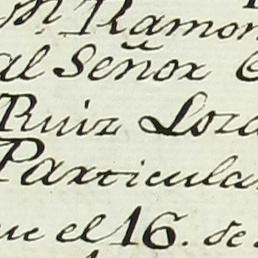 m. Ramon
al Señor
Ruiz Loza
Particular
ue el 16. de